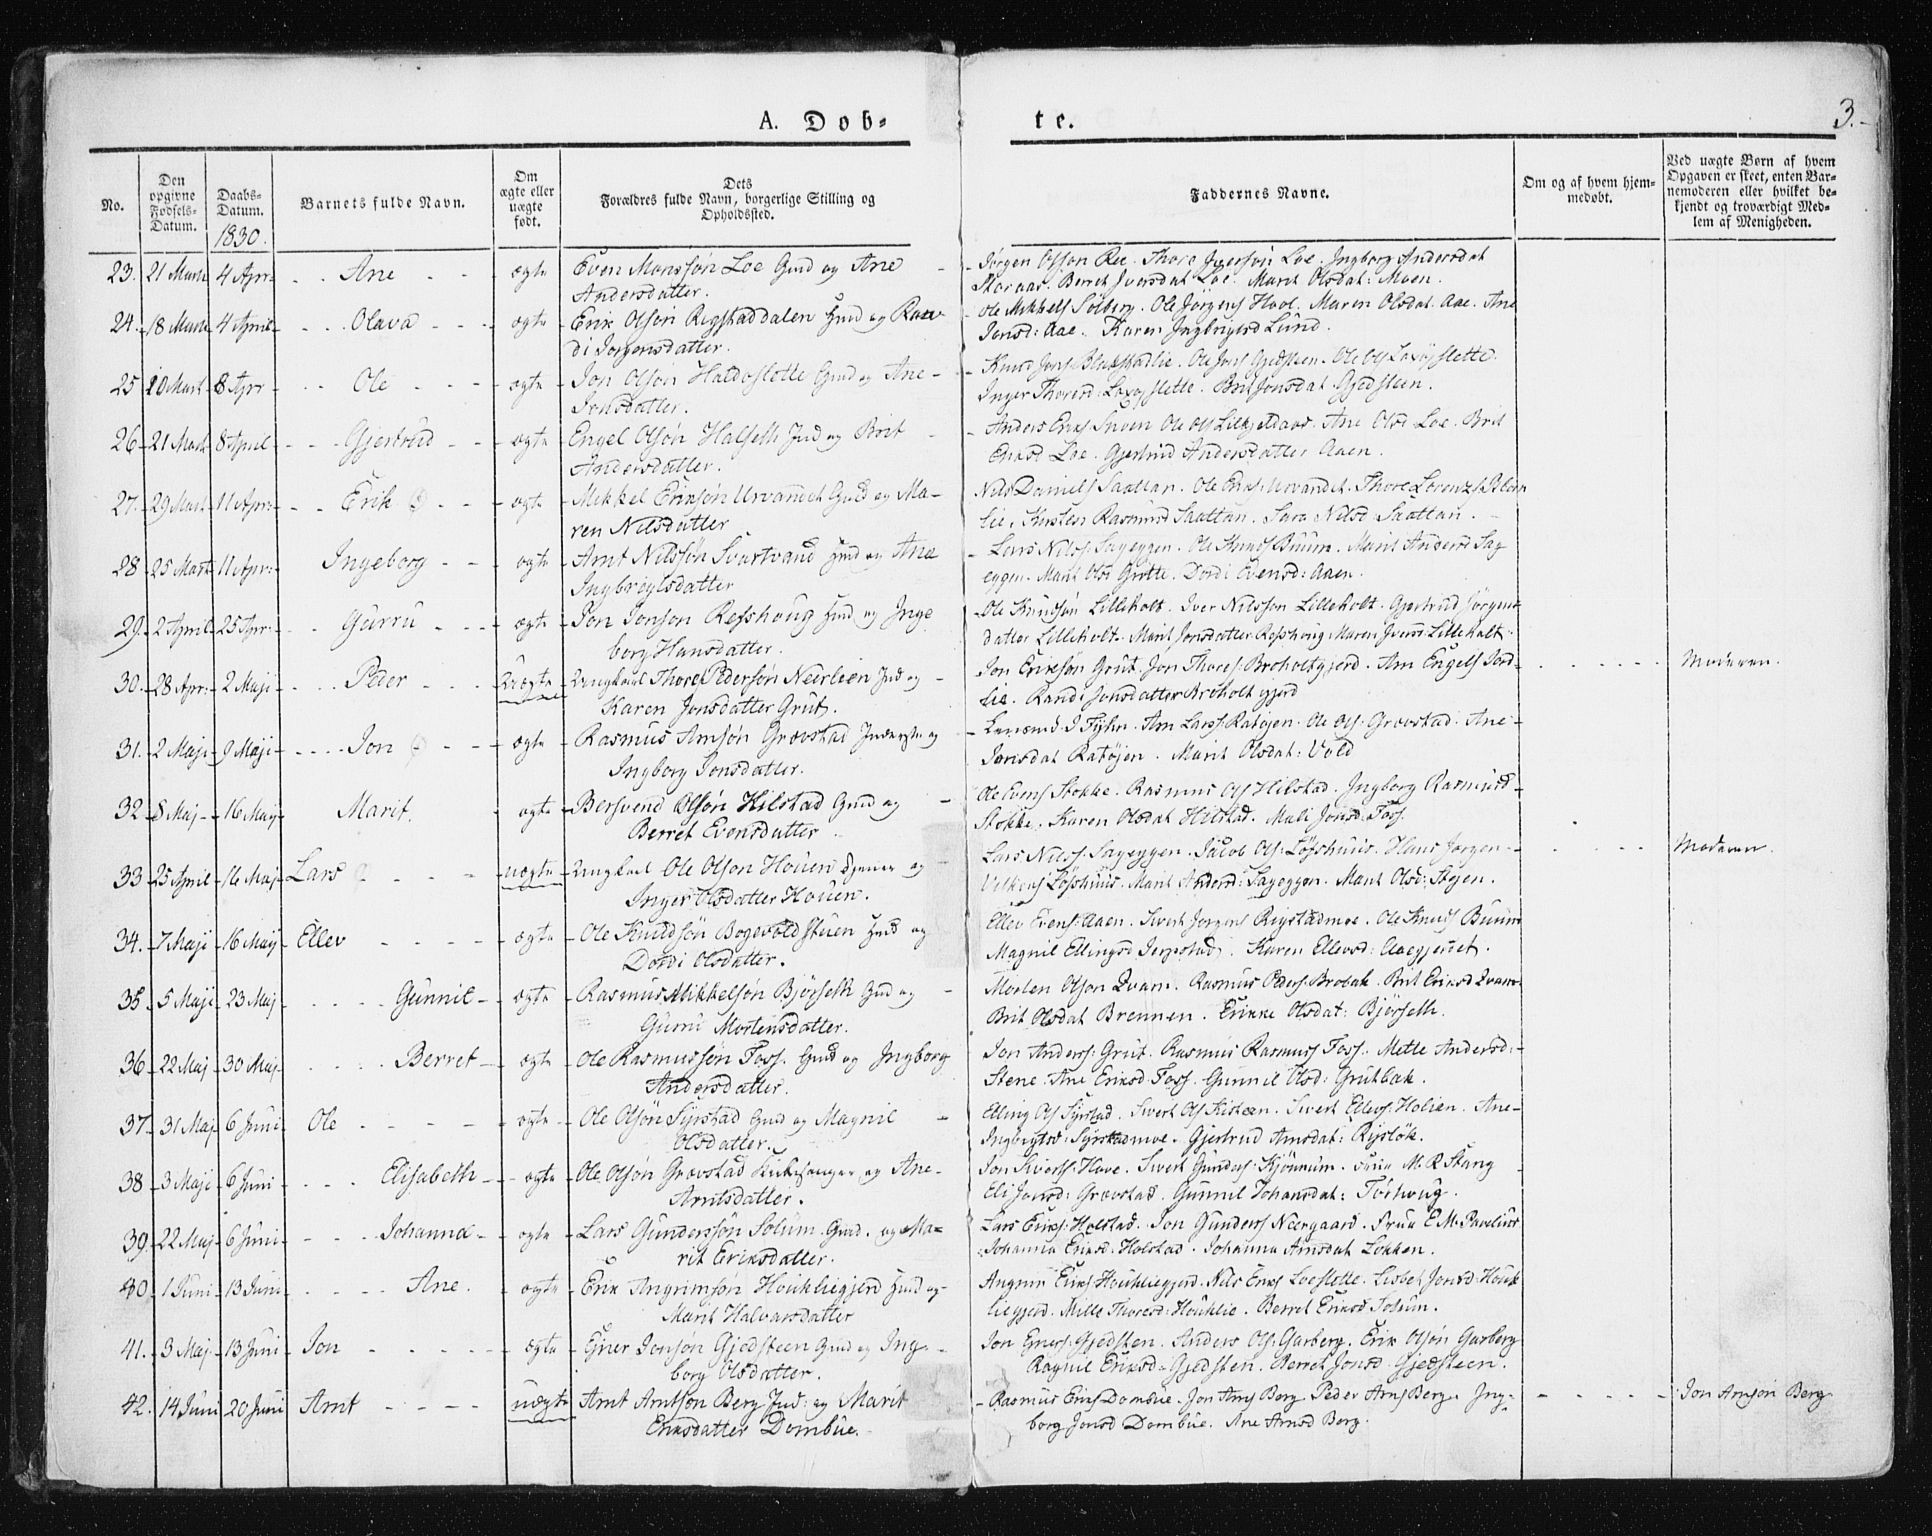 A. Døb-
te.
3.
No.
Den opgivne Fødsels-Datum.
Daabs-Datum. 1830.
Barnets fulde Navn.
Om ægte eller uægte født.
Dets Forældres fulde Navn, borgerlige Stilling og Opholdssted.
Faddernes Navne.
Om og af hvem hjemmedøbt.
Ved uægte Børn af hvem Opgaven er skeet, enten Barnemoderen eller hvilket bekjendt og troværdigt Medlem af Menigheden.
23. 21 Marts 4 Apr: Ane ægte Even Monssøn Loe Gmd og Ane
Andersdatter.
Jørgen Olson Ree. Thore Iversøn Loe. Ingborg Andersdat
Storaas. Berret Iversdat Loe. Marit Olsdat: Moen.
24. 18 Marts 4 April Olava ægte Erik Olson Rigstaddalen Hmd og Ran
di Jorgensdatter.
Ole Mikkels Solberg. Ole Jörgens Hool. Maren Olsdat. Aae. Ane
Jonsd: Aae. Karen Ingbrigtsd Lund.
25 10 Mart 8 Apr Ole ægte Jon Olson Haldoslette Gmd og Ane
Jonsdatter.
Ole Jons Gjedsteen. Ole Ols
Inger Thoresd: Brit Jonsdat Gjedsteen.
26 21 Mart 8 April Gjertrud ægte Engel Olsøn Halseth Ind og Brit
Andersdatter.
Anders Eriks Snoen Ole Ols Ane Olsd Loe. Brit
Eriksd Loe. Gjertrud Andersdatter Aaen.
27. 29 Mart 11 Apr: Erik ægte Mikkel Eriksøn Urvandet Gmd og Ma-
ren Nilsdatter
Nils Daniels Saattan. Ole Eriks: Urvandet. Thore Lorenzs
lie. Kirsten Rasmusd Saattan. Sara Nilsd Saattan.
28 25 Mart 11 Apr: Ingeborg ægte Arnt Nilssøn Svartvand Hmd og Ane
Ingbrigtsdatter
Lars Nilss: Sageggen. Ole Knuds Buum. Marit Andersd Sag
eggen. Marit Olsd Grøtte. Dordi Evensd: Aaen.
29. 2 April 25 Apr: Gurru ægte Jon Jonson Refshaug Hmd og Inge
borg Hansdatter.
Ole Knudsøn Lilleholt. Iver Nilsson Lilleholt. Gjertrud Jörgens
datter Lilleholt. Marit Jonsdatter Refshoug. Maren Iversd Lilleholt.
30. 28 Apr: 2 Maji Peder Uægte Ungkarl Thore Pedersøn Neerlien Ind og
Karen Jonsdatter Grut.
Jon Eriksøn Grut. Jon Thores: Broholtgjerd. Arn Engels Jord-
lie. Randi Jonsdatter Broholtgjerd
Moderen.
31. 2 Maji 9 Maji Jon ægte Rasmus Arnsøn Grøvstad Inderste og
Ingborg Jonsdatter.
Lensmd J Fyhn. Arn Larss: Ratøjen. Ole Ols: Grøvstad. Ane
Jonsdat Ratøjen. Marit Olsdat: Vold
32 8 Maj 16 Maj Marit. ægte Bersvend Olsøn Hilstad Gmd og
Berret Evensdatter
Ole Evens Stokke. Rasmus Ols Hilstad. Ingborg Rasmusd
Stokke. Karen Olsdat Hilstad. Mali Jonsd: Foss.
33 25 April 16 Maj Lars uægte Ungkarl Ole Olson Houen Tjener og
Inger Olsdatter Houen.
Lars Nilss: Sageggen. Jacob Ols: Løfshuus. Hans Jørgen
Løfshuus. Marit Andersd: Sageggen. Marit Olsd: Stejen.
Moderen.
34. 7 Maji 16 Maij Ellev ægte Ole Knudsøn Bogevoldstuen Hmd og
Dordi Olsdatter.
Ellev Evens: Aaen. Sivert Jorgens Rigstadmoe. Ole Knuds Buum
Magnil Ellingsd Jerpstad. Karen Ellevsd: Aaegjerret.
35 5 Maji 23 Maj Gunnil ægte Rasmus Mikkelsøn Bjørseth Gmd og
Gurru Mortensdatter.
Morten Olson Qvam. Rasmus Peders: Brobak. Brit Eriksd Qvam
Brit Olsdat Brennen. Erikke Olsdat: Bjørseth.
36 22 Maj 30 Maj Berret ægte Ole Rasmussøn Foss. Gmd og Ingborg
Andersdatter.
Jon Anderss: Grut. Rasmus Rasmuss Foss. Mette Andersd:
Stene. Ane Eriksd Foss. Gunnil Olsd: Grutbak.
37 31 Maj 6 Juni Ole ægte Ole Olsøn Syrstad Gmd og Magnil
Olsdatter.
Elling Ols Syrstad. Sivert Ols Sivert Ellevs: Holien. Ane
Ingbrigtsd: Syrstadmoe. Gjertrud Arnsdat: Rislök.
38 3 Maji 6 Juni Elisabeth ægte Ole Olsøn Grøvstad Kirkesanger og Ane
Arntsdatter.
Jon Siverts: Hove. Sivert Gunders: Kjönnum. Fruu M. R. Stang
Eli Jonsd: Grøvstad. Gunnil Johansdat: Torshoug.
39 22 Maj 6 Juni Johanna ægte Lars Gunderssøn Solum. Gmd. og Ma-
rit Eriksdatter.
Lars Eriks: Holstad. Jon Gunders Neergaard. Fruu E. M. Pavelius
Johanna Eriksd: Holstad. Johanna Arnsdat Løkken.
40 1 Juni 13 Juni Ane. ægte Erik Angrimsøn Houkliegjerd Hmd og
Marit Halvarsdatter
Angrim Eriks Houkliegjerd. Nils Eriks Loeslette. Lisbet Jonsd: Houk
liegjerd. Mille Thoresd: Houklie. Berret Eriksd Solum.
41. 3 Maj 13 Juni Jon ægte Ejner Jonsøn Gjedsteen Gmd og Ing
borg Olsdatter.
Jon Eners: Gjedsten. Anders Ols: Garberg. Erik Olsøn Garberg
Ragnil Eriksd Gjedsten. Berret Jonsd Gjedsteen.
42. 14 Juni 20 Juni Arnt uægte Arnt Arntsøn Berg Ind: og Marit
Eriksdatter Dombue.
Rasmus Eriks Dombue. Jon Arns Berg. Peder Arns Berg. Ing-
borg Jonsd Dombue. Ane Arnsd Berg.
Jon Arnsøn Berg